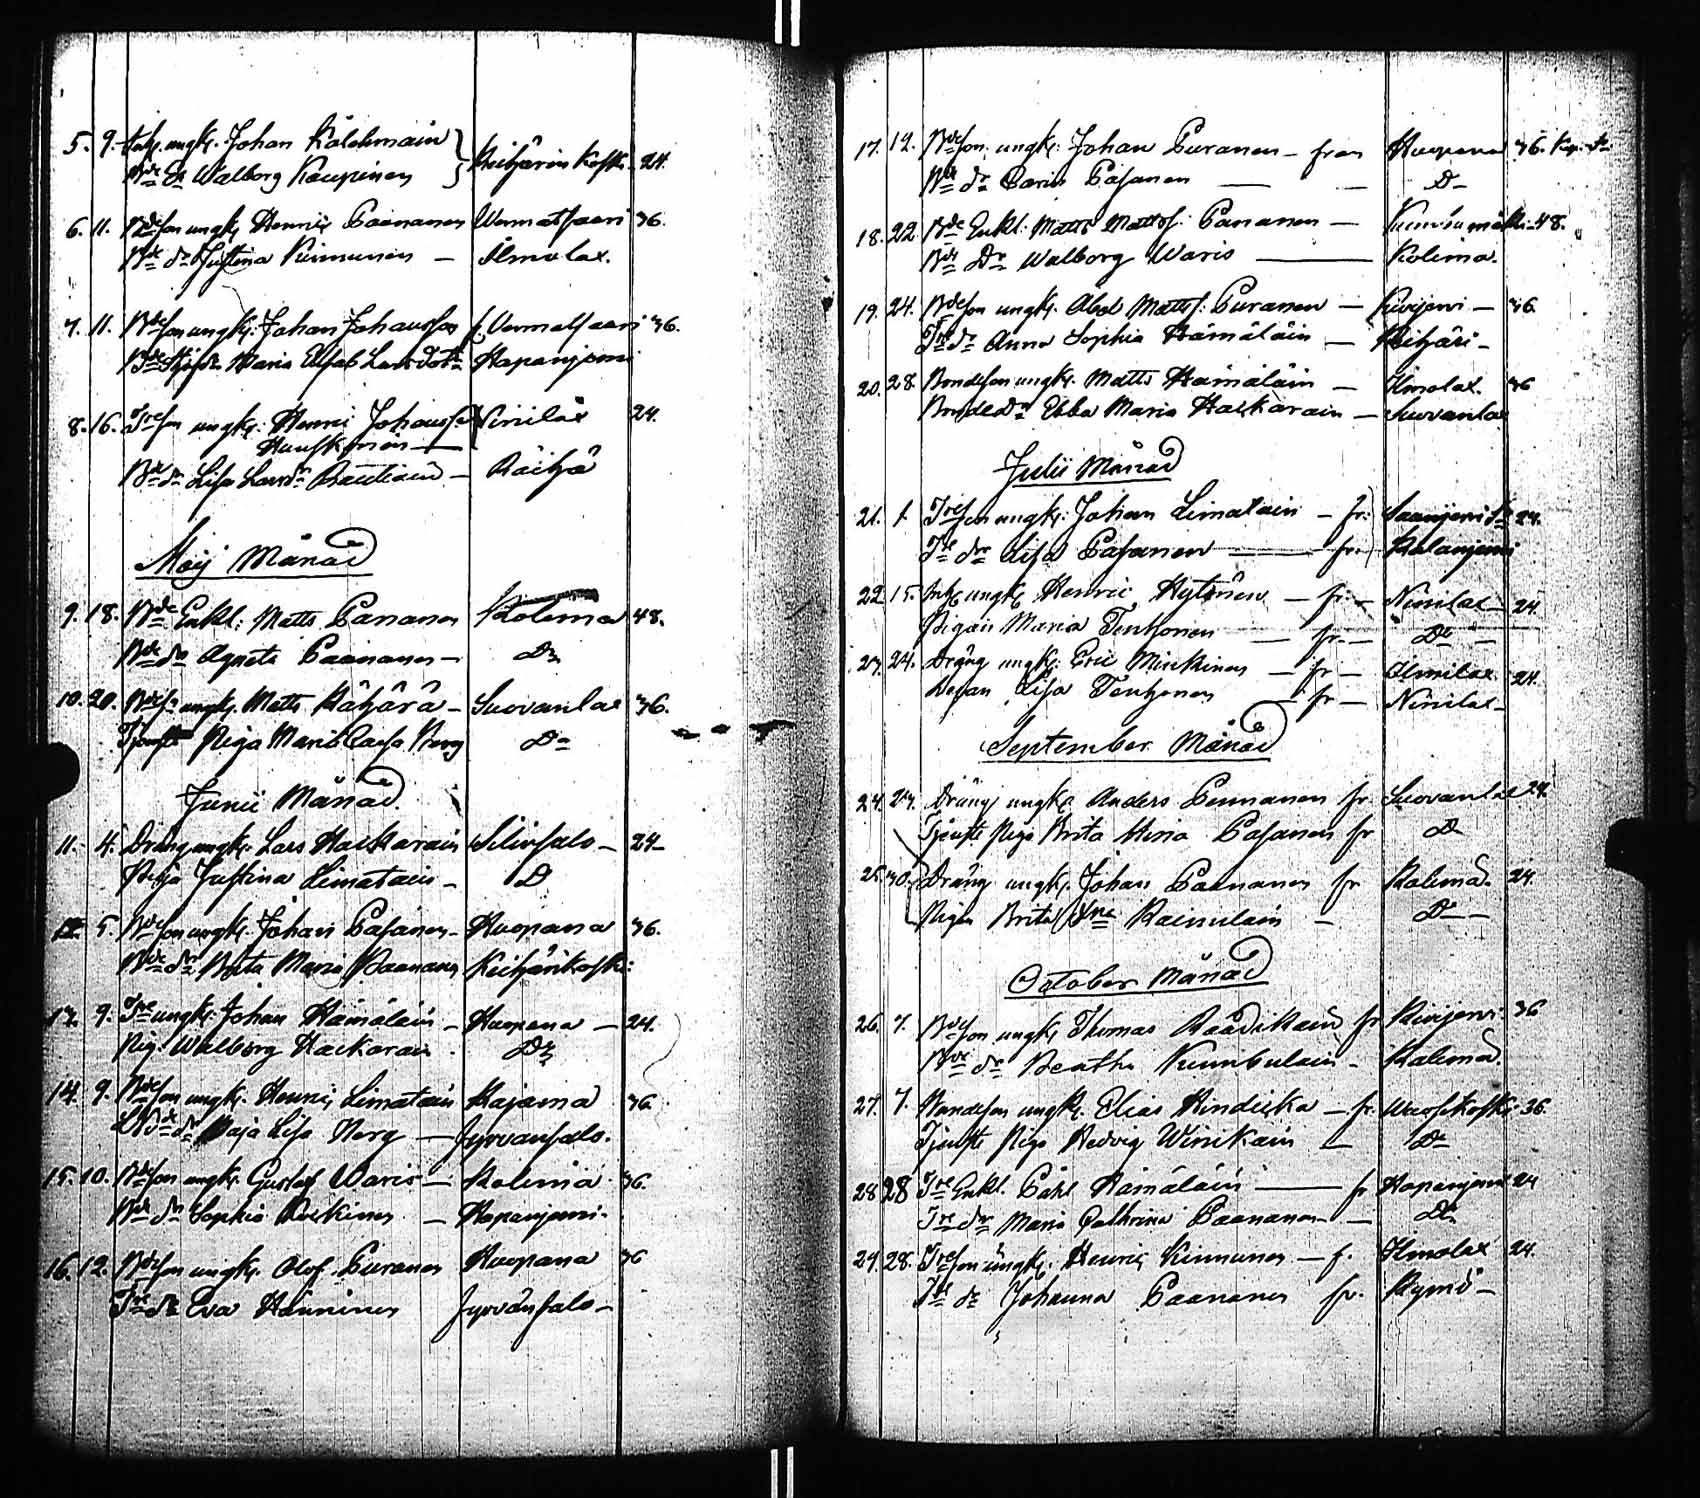 5. 9. Inh. ungk. Johan Kålehmain
Bde dr Walborg Kaupinen } Keihärin Koski 24.
6. 11. Bdeson ungk. Henric Paananen Wermatsaari 36.
Bde dr Justina Kinnunen – Ilmolax.
7. 11. Bdeson ungk. Johan Johansson f. Wermatsaari 36.
Maria Elisab. Larsdotr Hapanjemi
8. 16. Treson ungk. Henric Johansson Niinilax 24.
Bde dr Lisa Larsdr Rautiain – Räihä
Maij Månad
9. 18. Bde Enkl: Matts Pananen Kolima 48.
Bde dr Agneta Paananen – Do
10. 20. Bdesn ungk. Matts Kähärä – Suovanlax 36.
Tjenste Piga Maria Caisa Berg Do
Junii Månad.
11. 4. Dräng ungk. Lars Hackarain Wilinsalo – 24
Piga Justina Limatain – D
12. 5. Bdeson ungk. Johan Pasanen – Huopana 36.
Bde dr Brita Maria Paananen Keihärikoski
13. 9. Tre ungk. Johan Hämäläin – Huopana – 24.
Pig. Walborg Hackarain Do
14. 9. Bdeson ungk. Henric Limatain Kajama 36
Bde dr Maja Lisa Nerg – Jyrvänsalo.
15. 10. Bdeson ungk. Gustaf Waris – Kolima 36.
Bde dr Sophia – Hapanjemi.
16. 12. Bdeson ungk. Olof Puranen Huopana 36
Tre dr Eva Hänninen Jyrvänsalo –
17. 12. Bdeson ungk: Johan Puranen – från Huopana 36.
Bde dr Carin Pasanen – – D –
18. 22. Bde Enkl: Matts Mattss: Pananen – 48.
Bde Dr Walborg Waris – Kolima.
19. 24. Bdeson ungk. Abel Mattss: Puranen – Kivijervi – 36.
Tre dr Anna Sophia Hämäläin – Keihäri –
20. 28. Bondeson ungk. Matts Hämäläin – Ilmolax. 36
Bondedr Ebba Maria Hackarain – Suovanlax
Julii Månad
21. 1. Treson ungk: Johan Limatain – fr: Saanijervi 24.
Tre dr Lisa Pasanen – fr. Kalanjemi
22. 15. Inh. ungk. Henric Hytönen – fr. – Niinilax – 24
Pigan Maria Tenhonen – fr. – Do –
23. 24. Dräng ungk: Eric Minkinen – fr – Ilmilax. 24.
Lisa Tenhonen – fr – Niinilax –
September Månad
24. 23. Dräng ungk. Anders Pennanen fr. Suovanlax 24.
Tjenste Piga Brita Stina Pasanen fr D
25. 30. Dräng ungk. Johan Paananen fr Kolima. 24.
Pigan Brita Kainulain – Do –
October Månad
26. 7. Bdeson ungk. Thomas Raadikain fr Kivijervi 36
Bde dr Beatha Kumbulain – Kolima.
27. 7. Bondeson ungk. Elias Hindicka – fr. Wuoskoski 36.
Tjenste Piga Hedvig Winikain – Do
28. 28 Tre Enkl. Påhl Hämäläin – fr Hapanjemi 24
Tre dr Maria Cathrina Paananen – Do
29. 28. Treson ungk. Henric Kinnunen – f. Ilmolax 24.
Tre dr Johanna Paananen fr. Kymö –